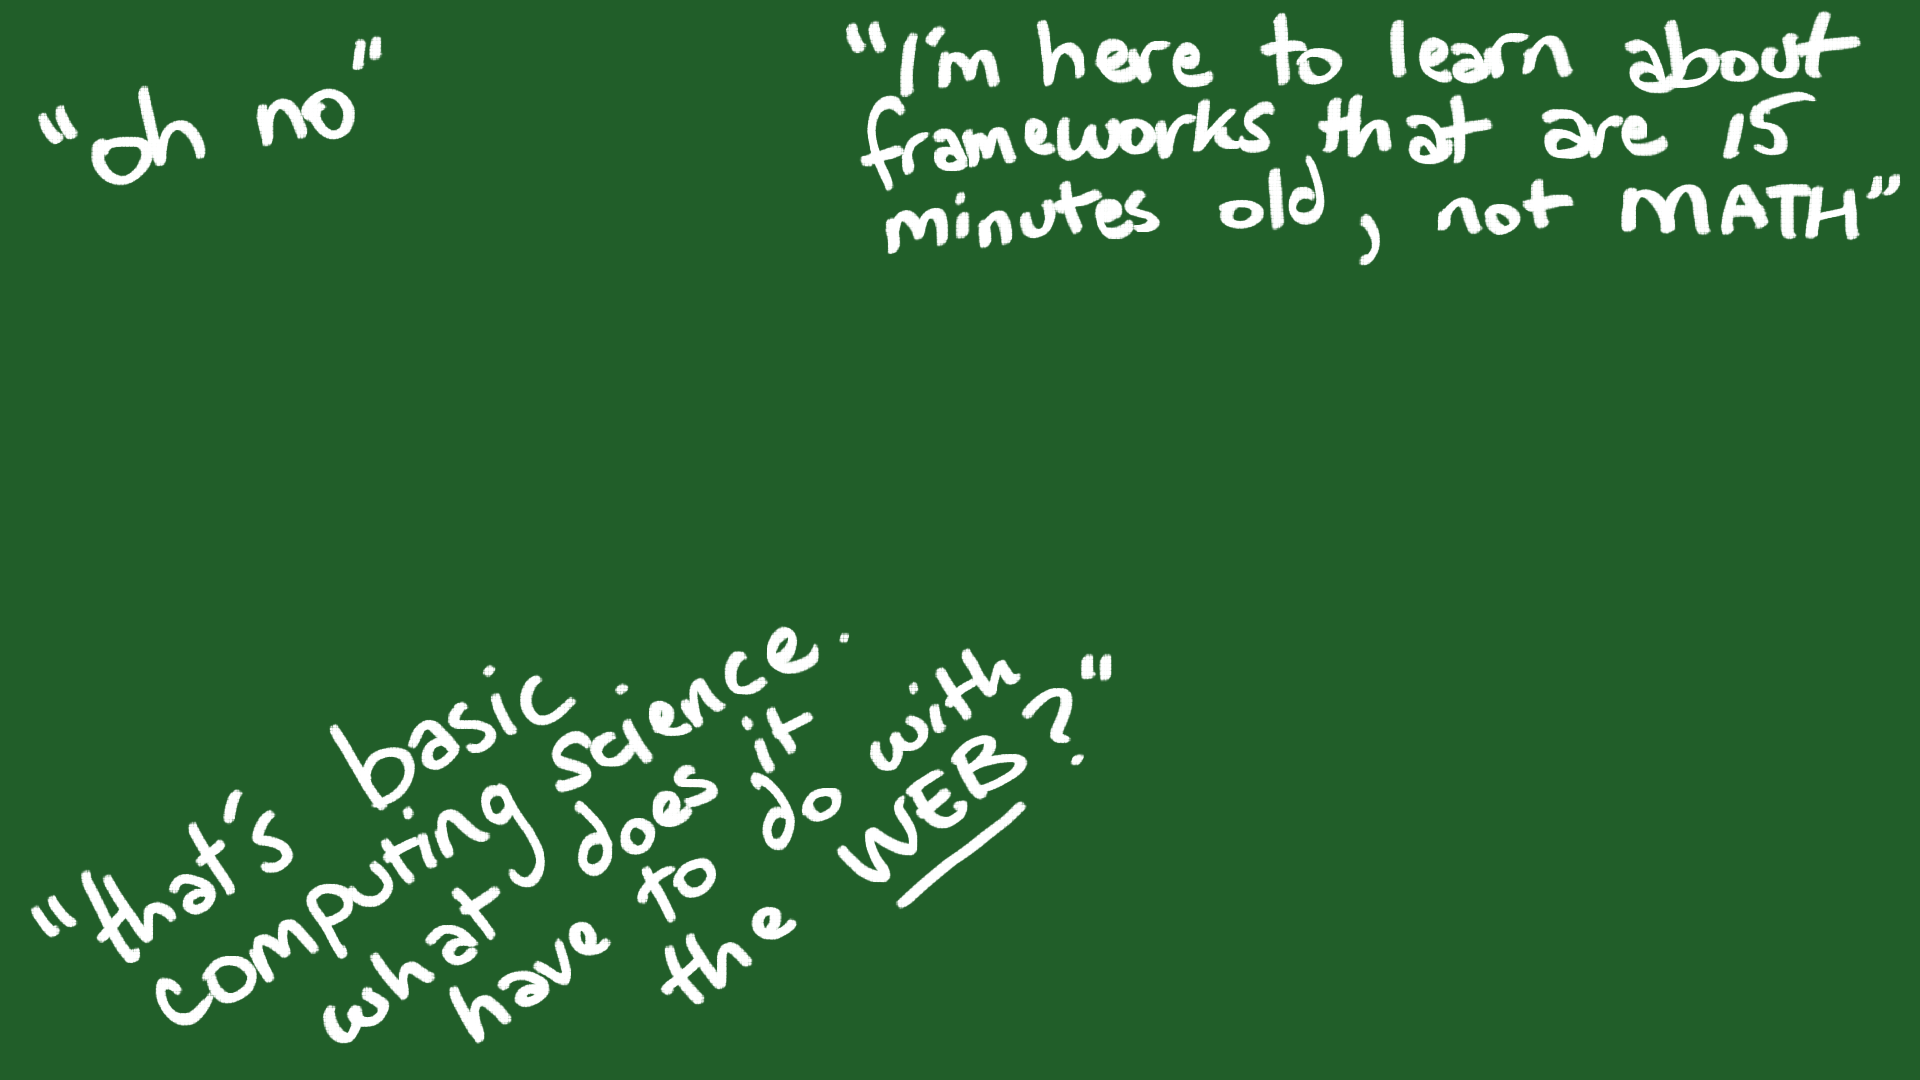 "oh no"
"I'm here to learn about
frameworks that are 15
minutes old, not MATH"
"that's basic
computing science.
what does it
have to do with
the WEB?"